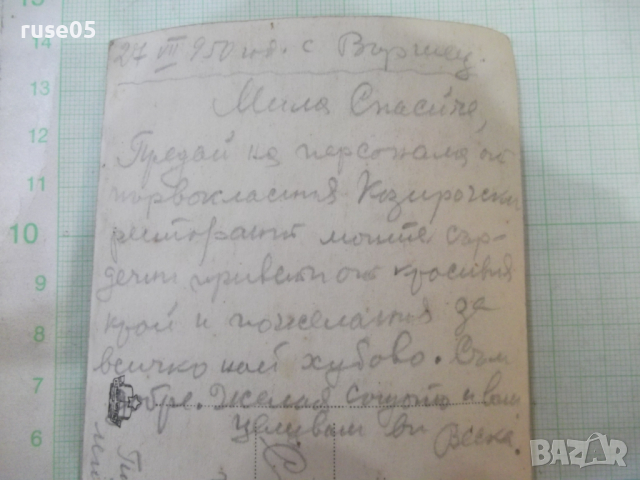 ruse05
15
13
12
11
10
9
8
7
6
27 VII 950 год. с Вършец.
Мила Спасиче,
Предай на персонала от
първокласния
ресторант моите сър-
дечни привети от красивия
край и пожелания за
всичко най хубово. Съм
добре. Желая същото и вам
Целувам Ви Веска.
BAZAR.bg